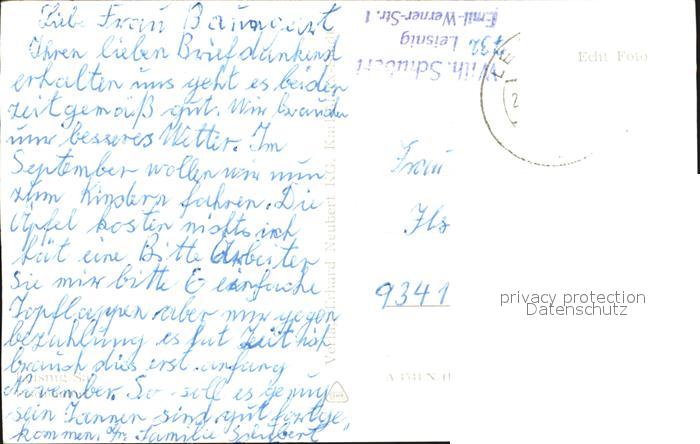 Liebe Frau Baumgart
Ihren lieben Brief dankend
erhalten uns geht es beiden
zeitgemäß gut. Wir brauchen
nur besseres Wetter. Im
September wollen wir nun
zum Kindern fahren. Die
Äpfel kosten nichts ich
hät eine Bitte Arbeiten
Sie mir bitte 6 einfache
Topflappen aber nur gegen
bezahlung es hat Zeit ich
brauch dies erst anfang
November. So soll es genug
sein Tannen sind gut fortge,
kommen. Familie Schubert
Wilh. Schubert
732 Leisnig
Emil-Werner-Str. 1
Echt Foto
Frau
Ils
9341
Verlag Richard Neubert KG.
privacy protection
Datenschutz